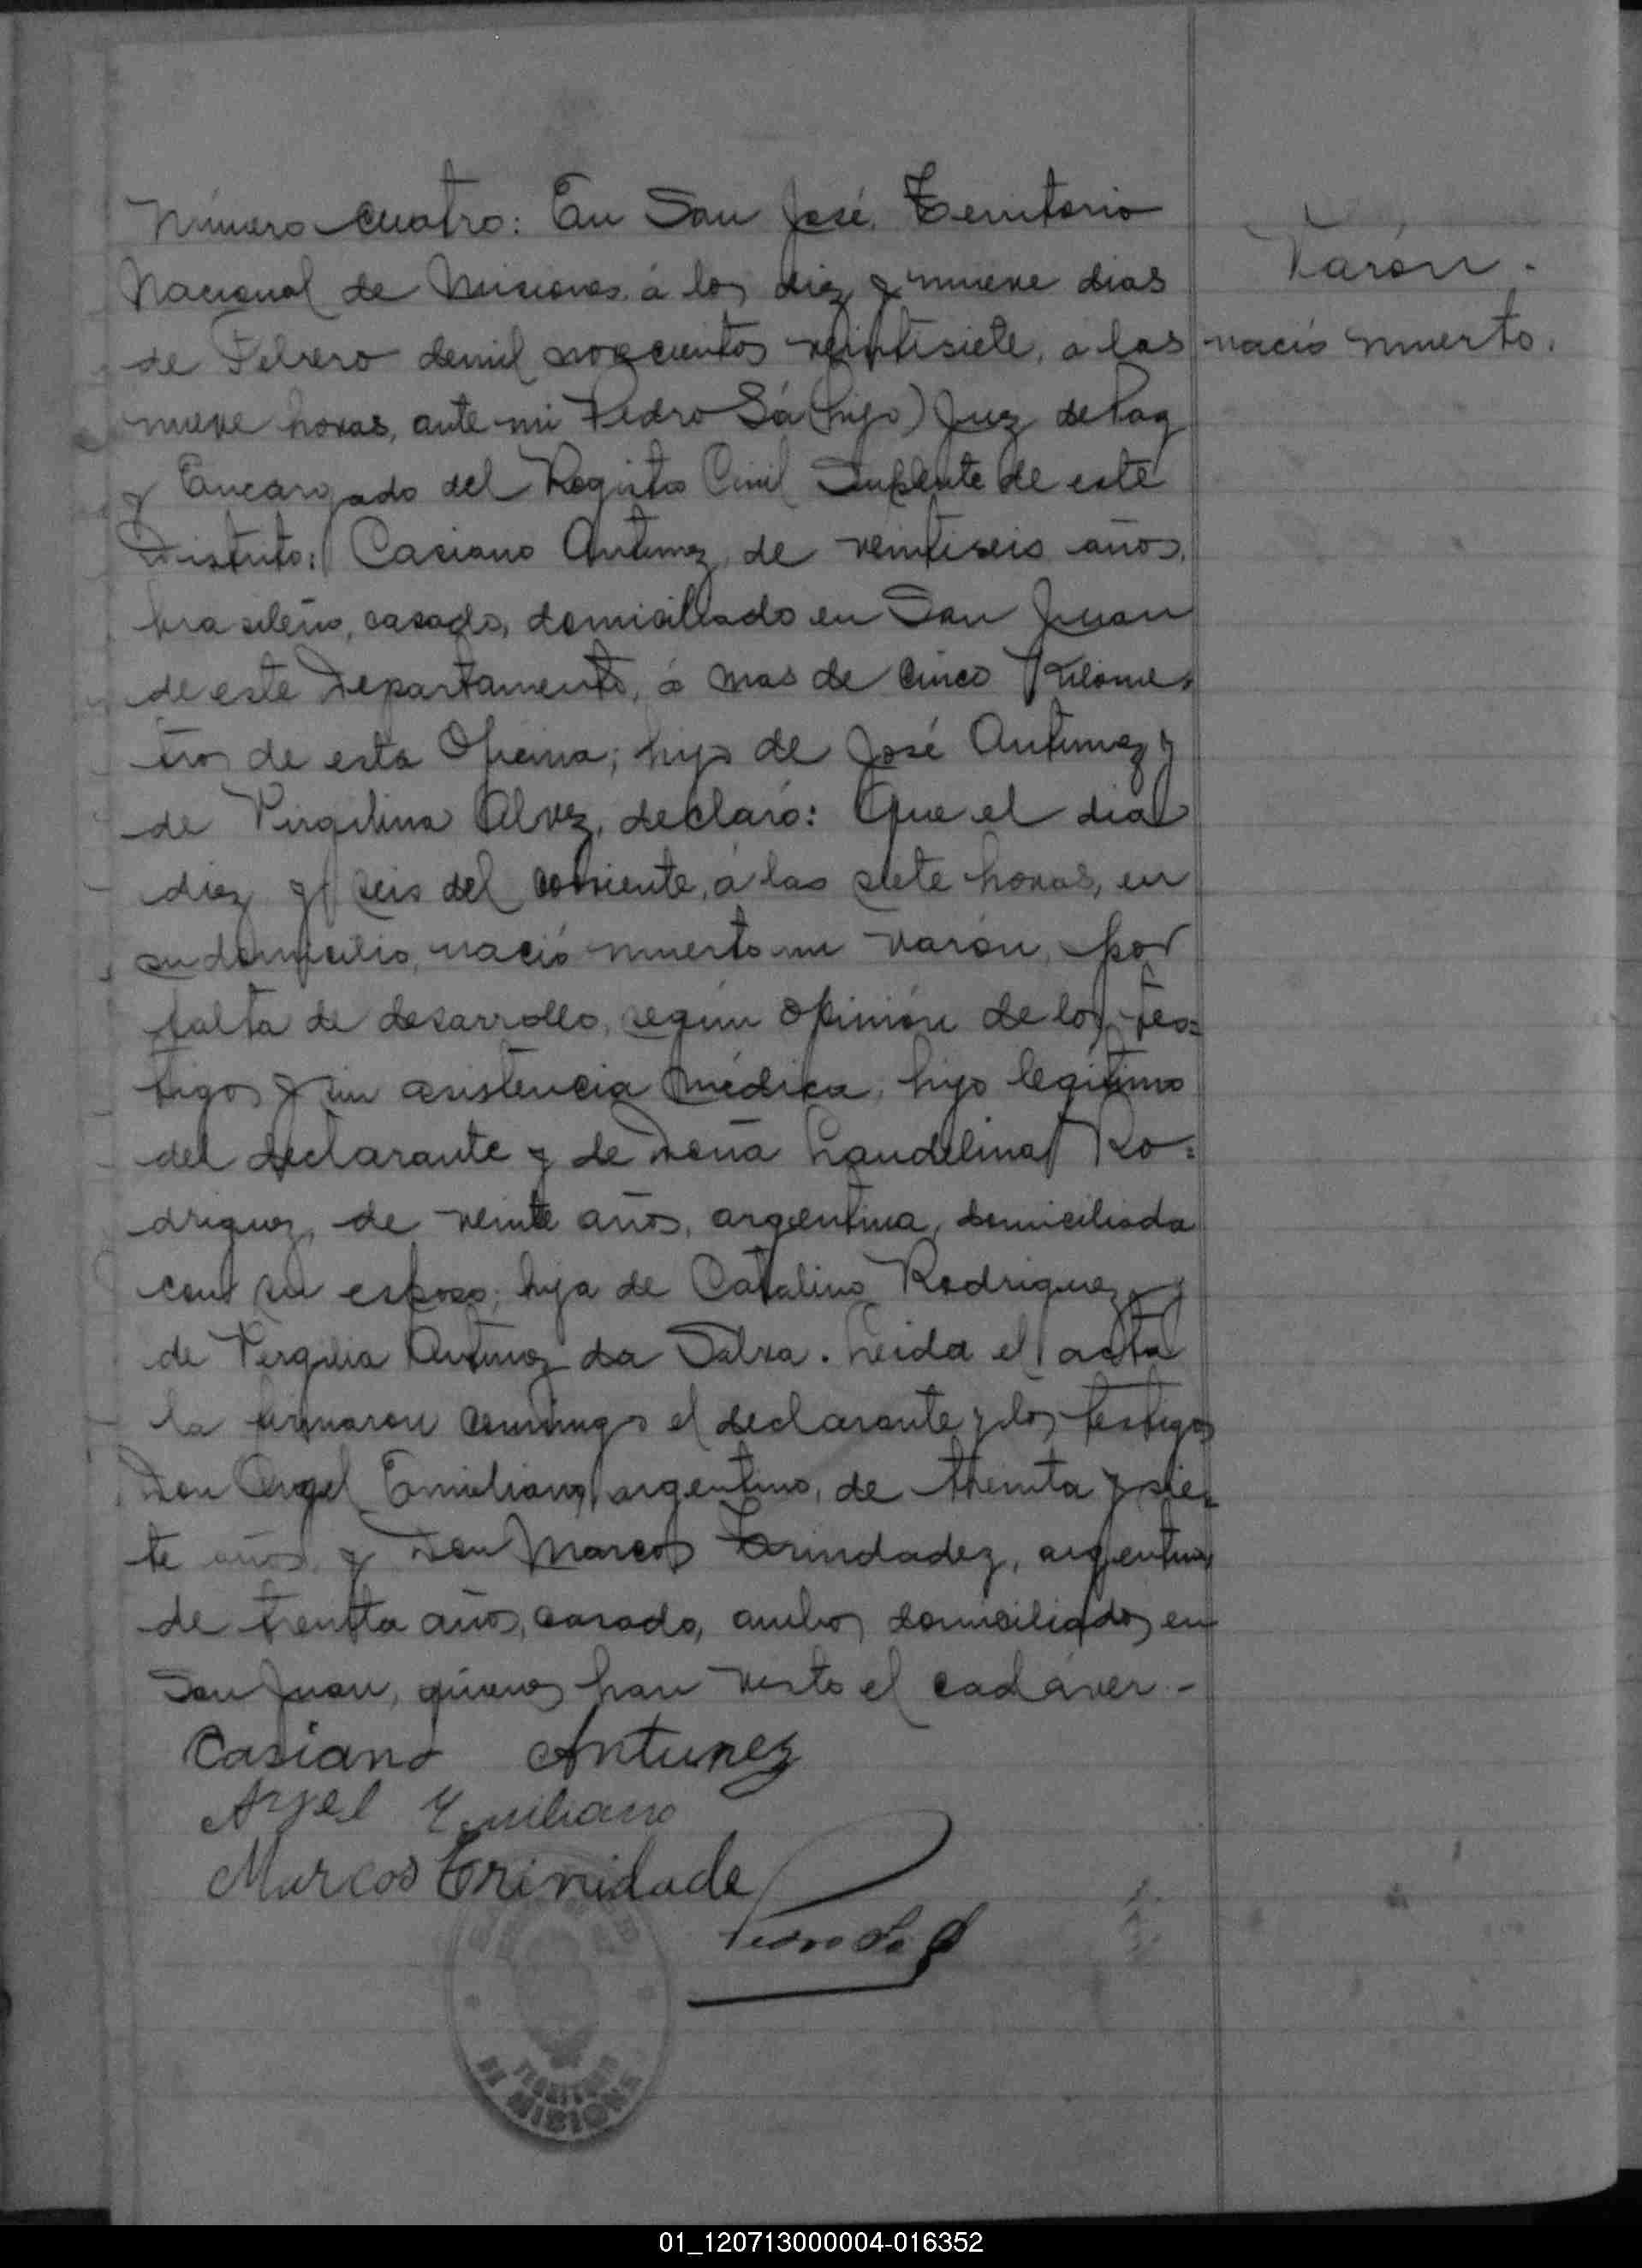 Número cuatro: En San José, Territorio
Nacional de Misiones á los diez y nueve dias
de Febrero de mil novecientos veintisiete, a las
nueve horas, ante mi Pedro Sá (hijo) Juez de Paz
y Encargado del Registro Civil Suplente de este
Distrito: Casiano Antunez, de veintiseis años,
brasileño, casado, domiciliado en San Juan
de este Departamento, á mas de cinco Kilome-
tros de esta Oficina; hijo de José Antunez y
de Virgilina Alvez, declaró: Que el dia
diez y seis del corriente, á las siete horas, en
su domicilio, nació muerto un varón, por
falta de desarrollo, según opinión de los tes=
tigos y sin asistencia médica; hijo legítimo
del declarante y de Doña Laudelina Ro=
driguez, de veinte años, argentina, domiciliada
con su esposo; hija de Catalino Rodriguez y
de Virgilia Antunez da Silva. Leida el acta
la firmaron conmigo el declarante y los testigos
Don Angel Emiliano, argentino, de treinta y sie-
te años y Don Marcos Trindadez, argentino,
de treinta años, casado, ambos domiciliados en
San Juan, quienes han visto el cadáver.-
Varón.
nació muerto.
Casiano Antunez
Angel Emiliano
Marcos Trinidade
Pedro Sá
TERRITORIO
DE MISIONES
01_120713000004-016352